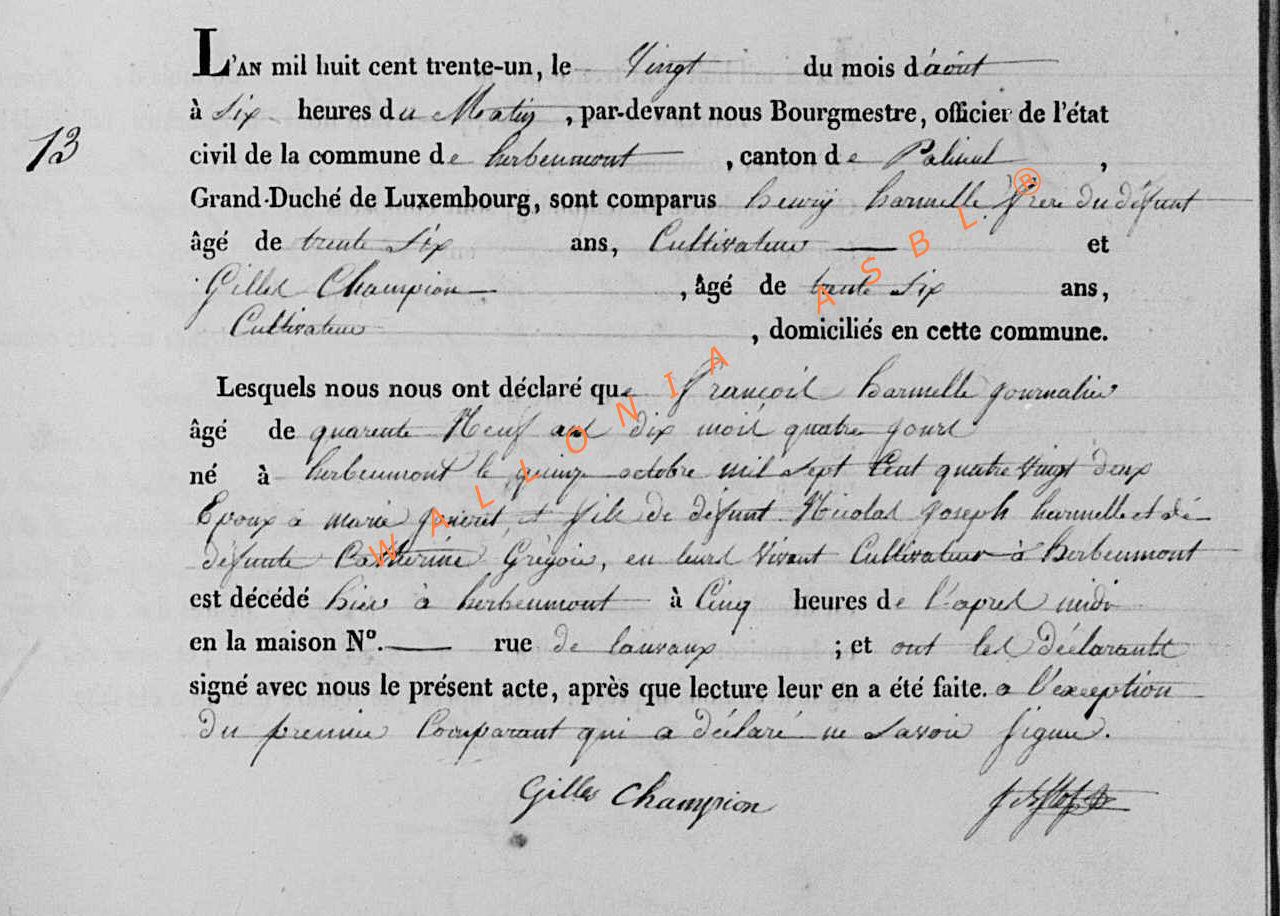 L'AN mil huit cent trente-un, le Vingt du mois d'août
à Six heures du Matin, par-devant nous Bourgmestre, officier de l'état
13
civil de la commune de herbeumont, canton de Paliseul,
Grand-Duché de Luxembourg, sont comparus henry harmelle frère du défunt
âgé de trente Six ans, Cultivateur et
Gilles Champion, âgé de trente Six ans,
Cultivateur, domiciliés en cette commune.
Lesquels nous nous ont déclaré que François harmelle journalier
âgé de quarente Neuf ans dix mois quatre jours
né à herbeumont le quinze octobre mil Sept Cent quatre vingt deux
Epoux à marie et fils de défunt Nicolas joseph harmelle et dé-
défunte Catherine Grégoire, en leurs vivant Cultivateur à herbeumont
est décédé hier à herbeumont à Cinq heures de l'apres midi
en la maison N°. rue de lauvaux ; et ont les déclarants
signé avec nous le présent acte, après que lecture leur en a été faite. a l'exception
du premier Comparant qui a déclaré ne Savoir Signer.
Gilles Champion
WALLONIA ASBL ®